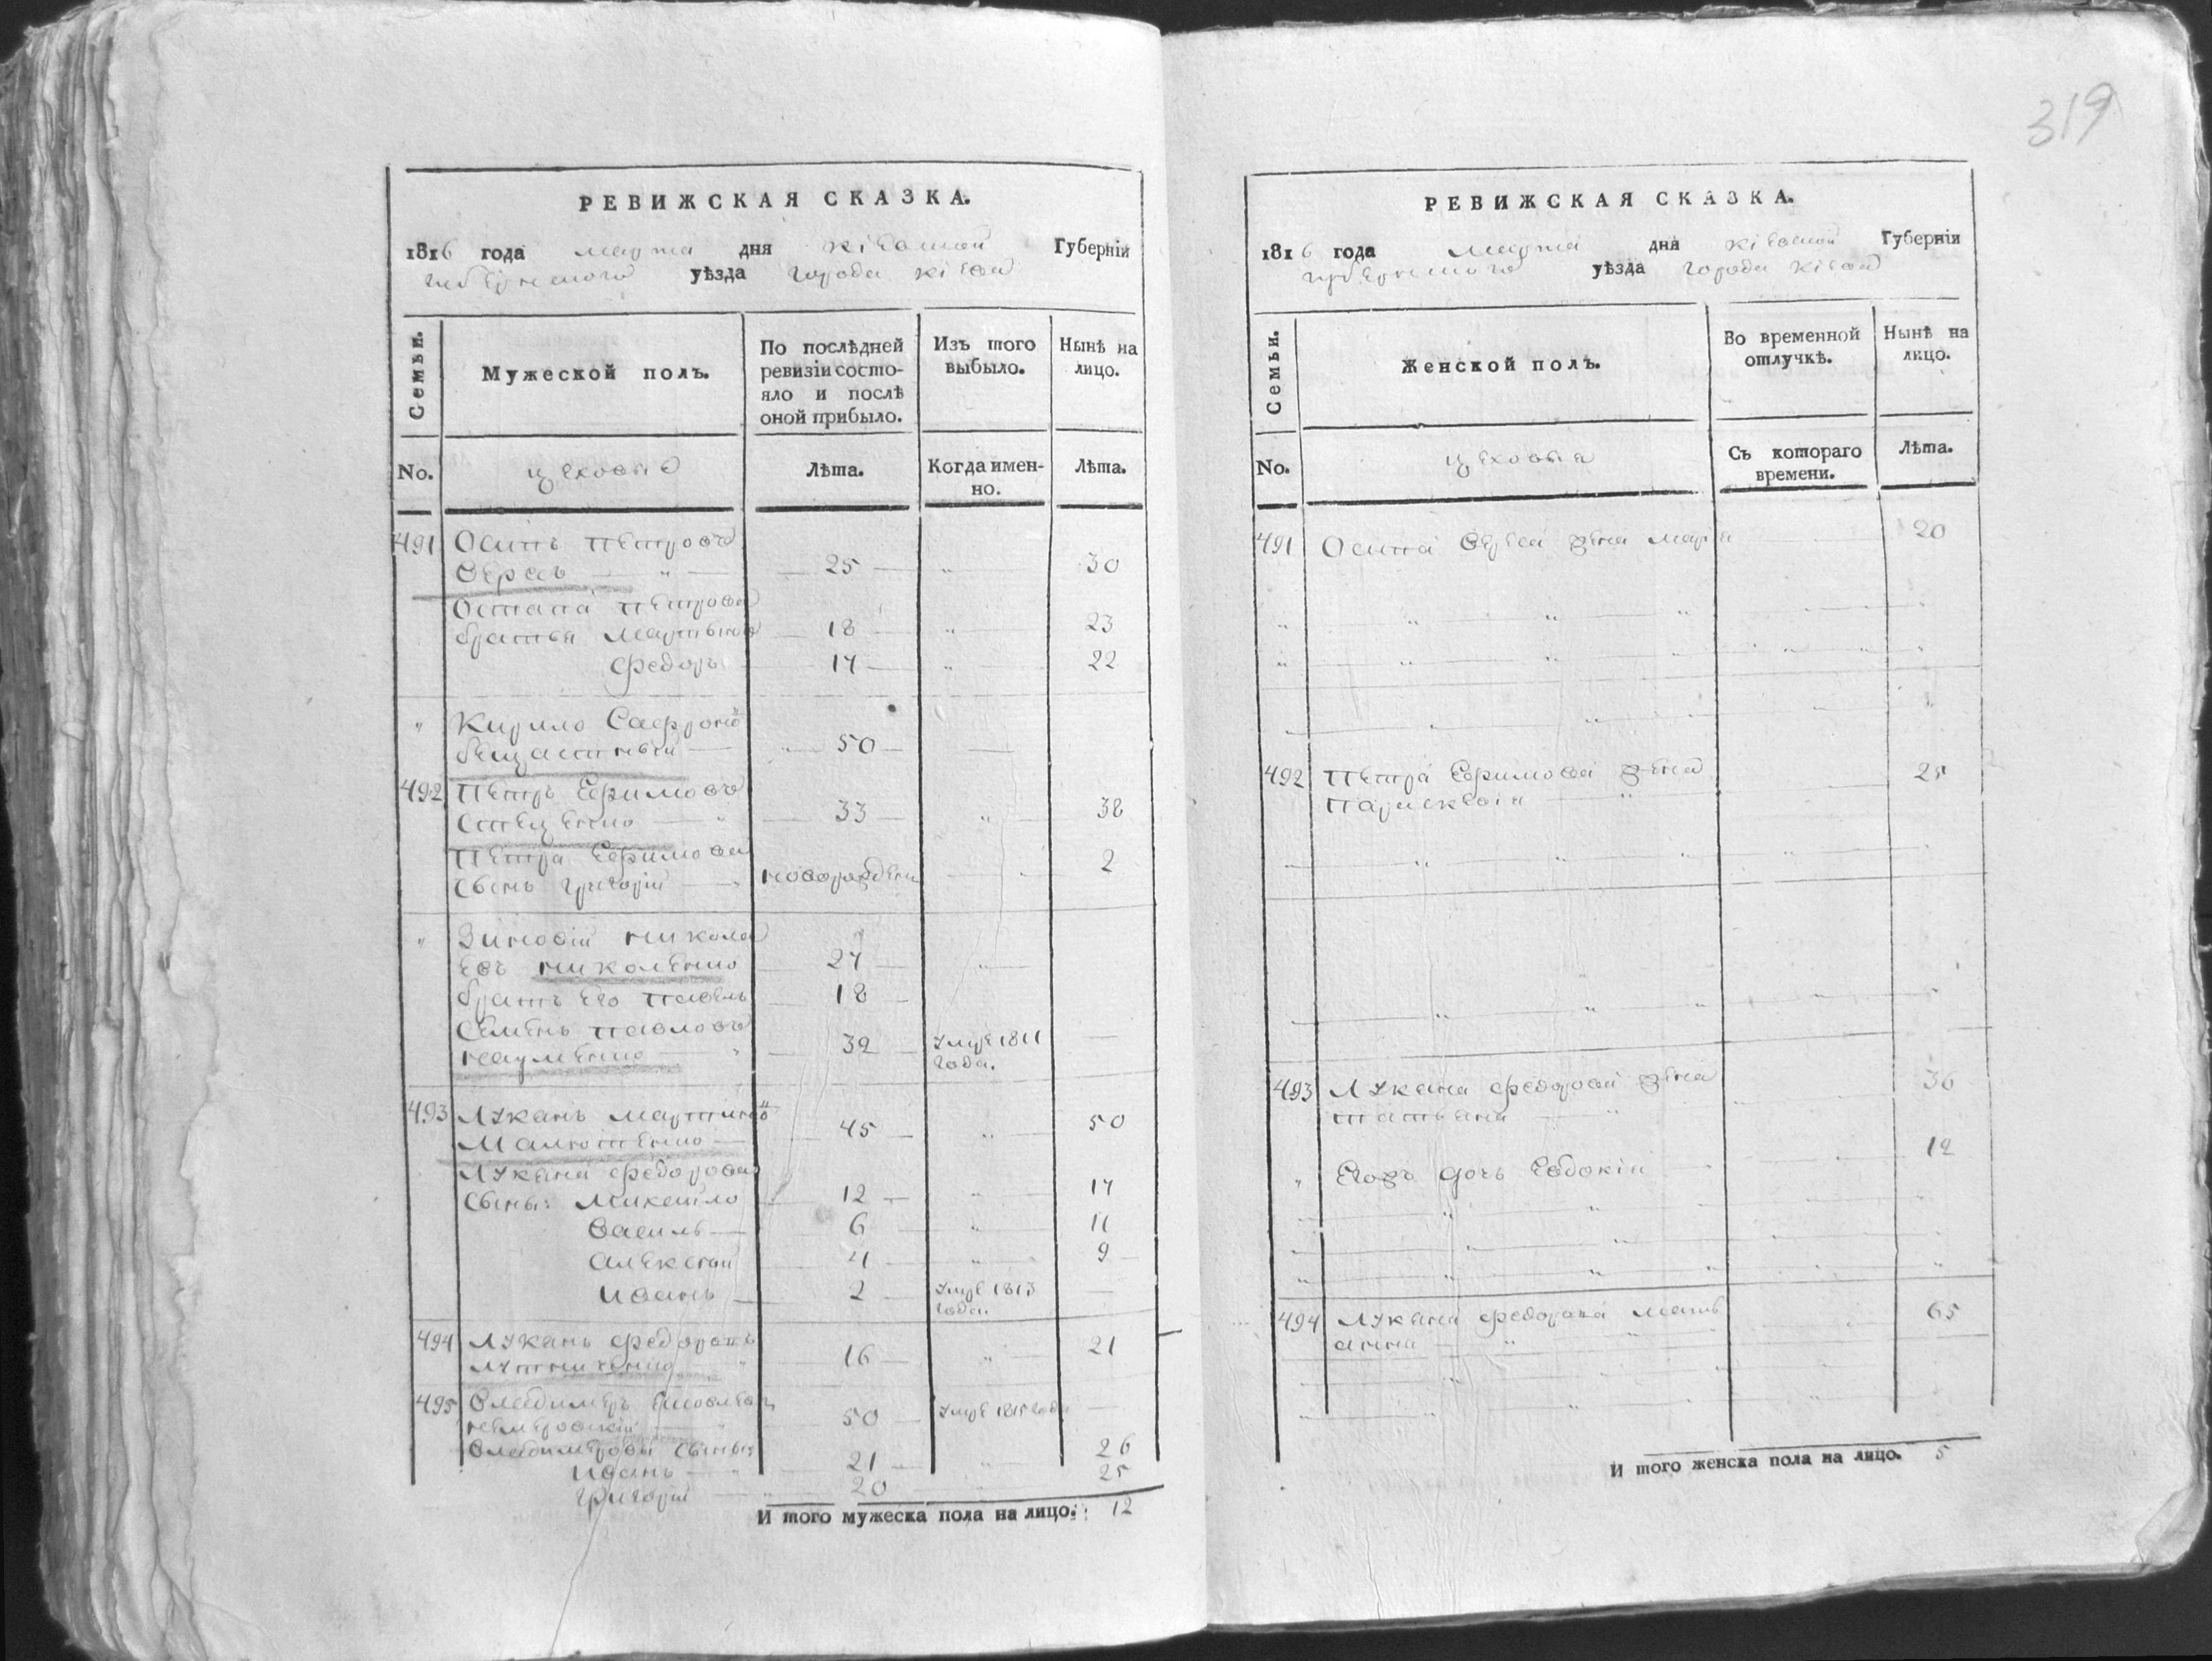 319
РЕВИЖСКАЯ СКАЗКА.
1816 года марта дня Кіевской Губерніи
губернскаго уѣзда города Кіева
Семьи.
Мужеской полъ.
По послѣдней ревизіи состо-
яло и послѣ
оной прибыло.
Изъ того
выбыло.
Нынѣ на
лицо.
No.
цеховые
Лѣта.
Когда имен-
но.
Лѣта.
491 Осипъ Петровъ
25 " 30
Остапа Петрова
братья Мартынъ 18 " 23
Федоръ 17 " 22
" Кирило Сафроновъ
50
492 Петръ Ефимовъ
Стеценко " 33 " 38
Петра Ефимова
сынъ Григорій " новорожденъ 2
" Зиновій Никола
евъ Николенко 27 "
братъ его Павелъ 18
Семенъ Павловъ
Науменко " 32 умре 1811
года.
493 Луканъ Мартиновъ
45 " 50
Лукана Федорова
сыны: Михайло 12 " 17
Василь 6 " 11
Алексей 4 " 9
Иванъ 2 умре 1813
года.
494 Луканъ Федоровъ
16 " 21
495 Владимеръ
50 умре 1815 года
Владимерова сыны:
Иванъ " 21 " 26
Григорій " 20 25
И того мужеска пола на лицо: 12
РЕВИЖСКАЯ СКАЗКА.
1816 года марта дня Кіевской Губерніи
губернскаго уѣзда города Кіева
Семьи.
Женской полъ.
Во временной
отлучкѣ.
Нынѣ на
лицо.
No.
цеховыя
Съ котораго
времени.
Лѣта.
491 Осипа жена Марія 20
492 Петра Ефимова жена 25
Параскевія "
493 Лукана Федорова жена 36
Татьяна "
" Егожъ дочь Евдокія " 12
494 Лукана Федорова мать 65
Анна "
И того женска пола на лицо. 5